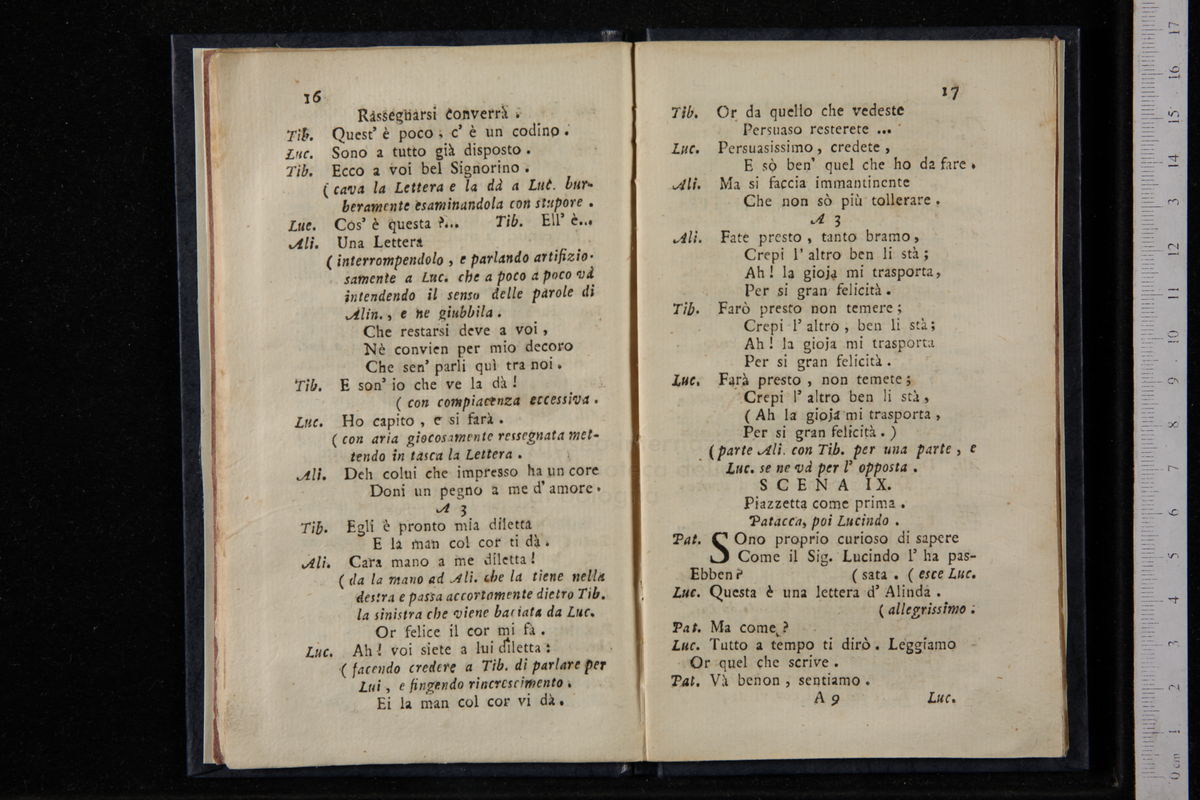 16
Rassegnarsi converrà.
Tib. Quest' è poco; c' è un codino.
Luc. Sono a tutto già disposto.
Tib. Ecco a voi bel Signorino.
( cava la Lettera e la dà a Luc. bur-
beramente esaminandola con stupore.
Luc. Cos' è questa ?... Tib. Ell' è...
Ali. Una Lettera
( interrompendolo, e parlando artifizio-
samente a Luc. che a poco a poco và
intendendo il senso delle parole di
Alin., e ne giubbila.
Che restarsi deve a voi,
Nè convien per mio decoro
Che sen' parli quì tra noi.
Tib. E son' io che ve la dà!
( con compiacenza eccessiva.
Luc. Ho capito, e si farà.
( con aria giocosamente ressegnata met-
tendo in tasca la Lettera.
Ali. Deh colui che impresso ha un core
Doni un pegno a me d' amore.
A 3
Tib. Egli è pronto mia diletta
E la man col cor ti dà.
Ali. Cara mano a me diletta!
( da la mano ad Ali. che la tiene nella
destra e passa accortamente dietro Tib.
la sinistra che viene baciata da Luc.
Or felice il cor mi fà.
Luc. Ah! voi siete a lui diletta:
( facendo credere a Tib. di parlare per
Lui, e fingendo rincrescimento.
Ei la man col cor vi dà.
17
Tib. Or da quello che vedeste
Persuaso resterete ...
Luc. Persuasissimo, credete,
E sò ben' quel che ho da fare.
Ali. Ma si faccia immantinente
Che non sò più tollerare.
A 3
Ali. Fate presto, tanto bramo,
Crepi l' altro ben li stà;
Ah! la gioja mi trasporta,
Per si gran felicità.
Tib. Farò presto non temere;
Crepi l' altro, ben li stà;
Ah! la gioja mi trasporta
Per si gran felicità.
Luc. Farà presto, non temete;
Crepi l' altro ben li stà,
( Ah la gioja mi trasporta,
Per si gran felicità. )
( parte Ali. con Tib. per una parte, e
Luc. se ne và per l' opposta.
SCENA IX.
Piazzetta come prima.
Patacca, poi Lucindo.
Pat. SOno proprio curioso di sapere
Come il Sig. Lucindo l' ha pas-
Ebben? ( sata. ( esce Luc.
Luc. Questa è una lettera d' Alinda.
( allegrissimo.
Pat. Ma come?
Luc. Tutto a tempo ti dirò. Leggiamo
Or quel che scrive.
Pat. Và benon, sentiamo.
A 9 Luc.
0 cm 1 2 3 4 5 6 7 8 9 10 11 12 13 14 15 16 17